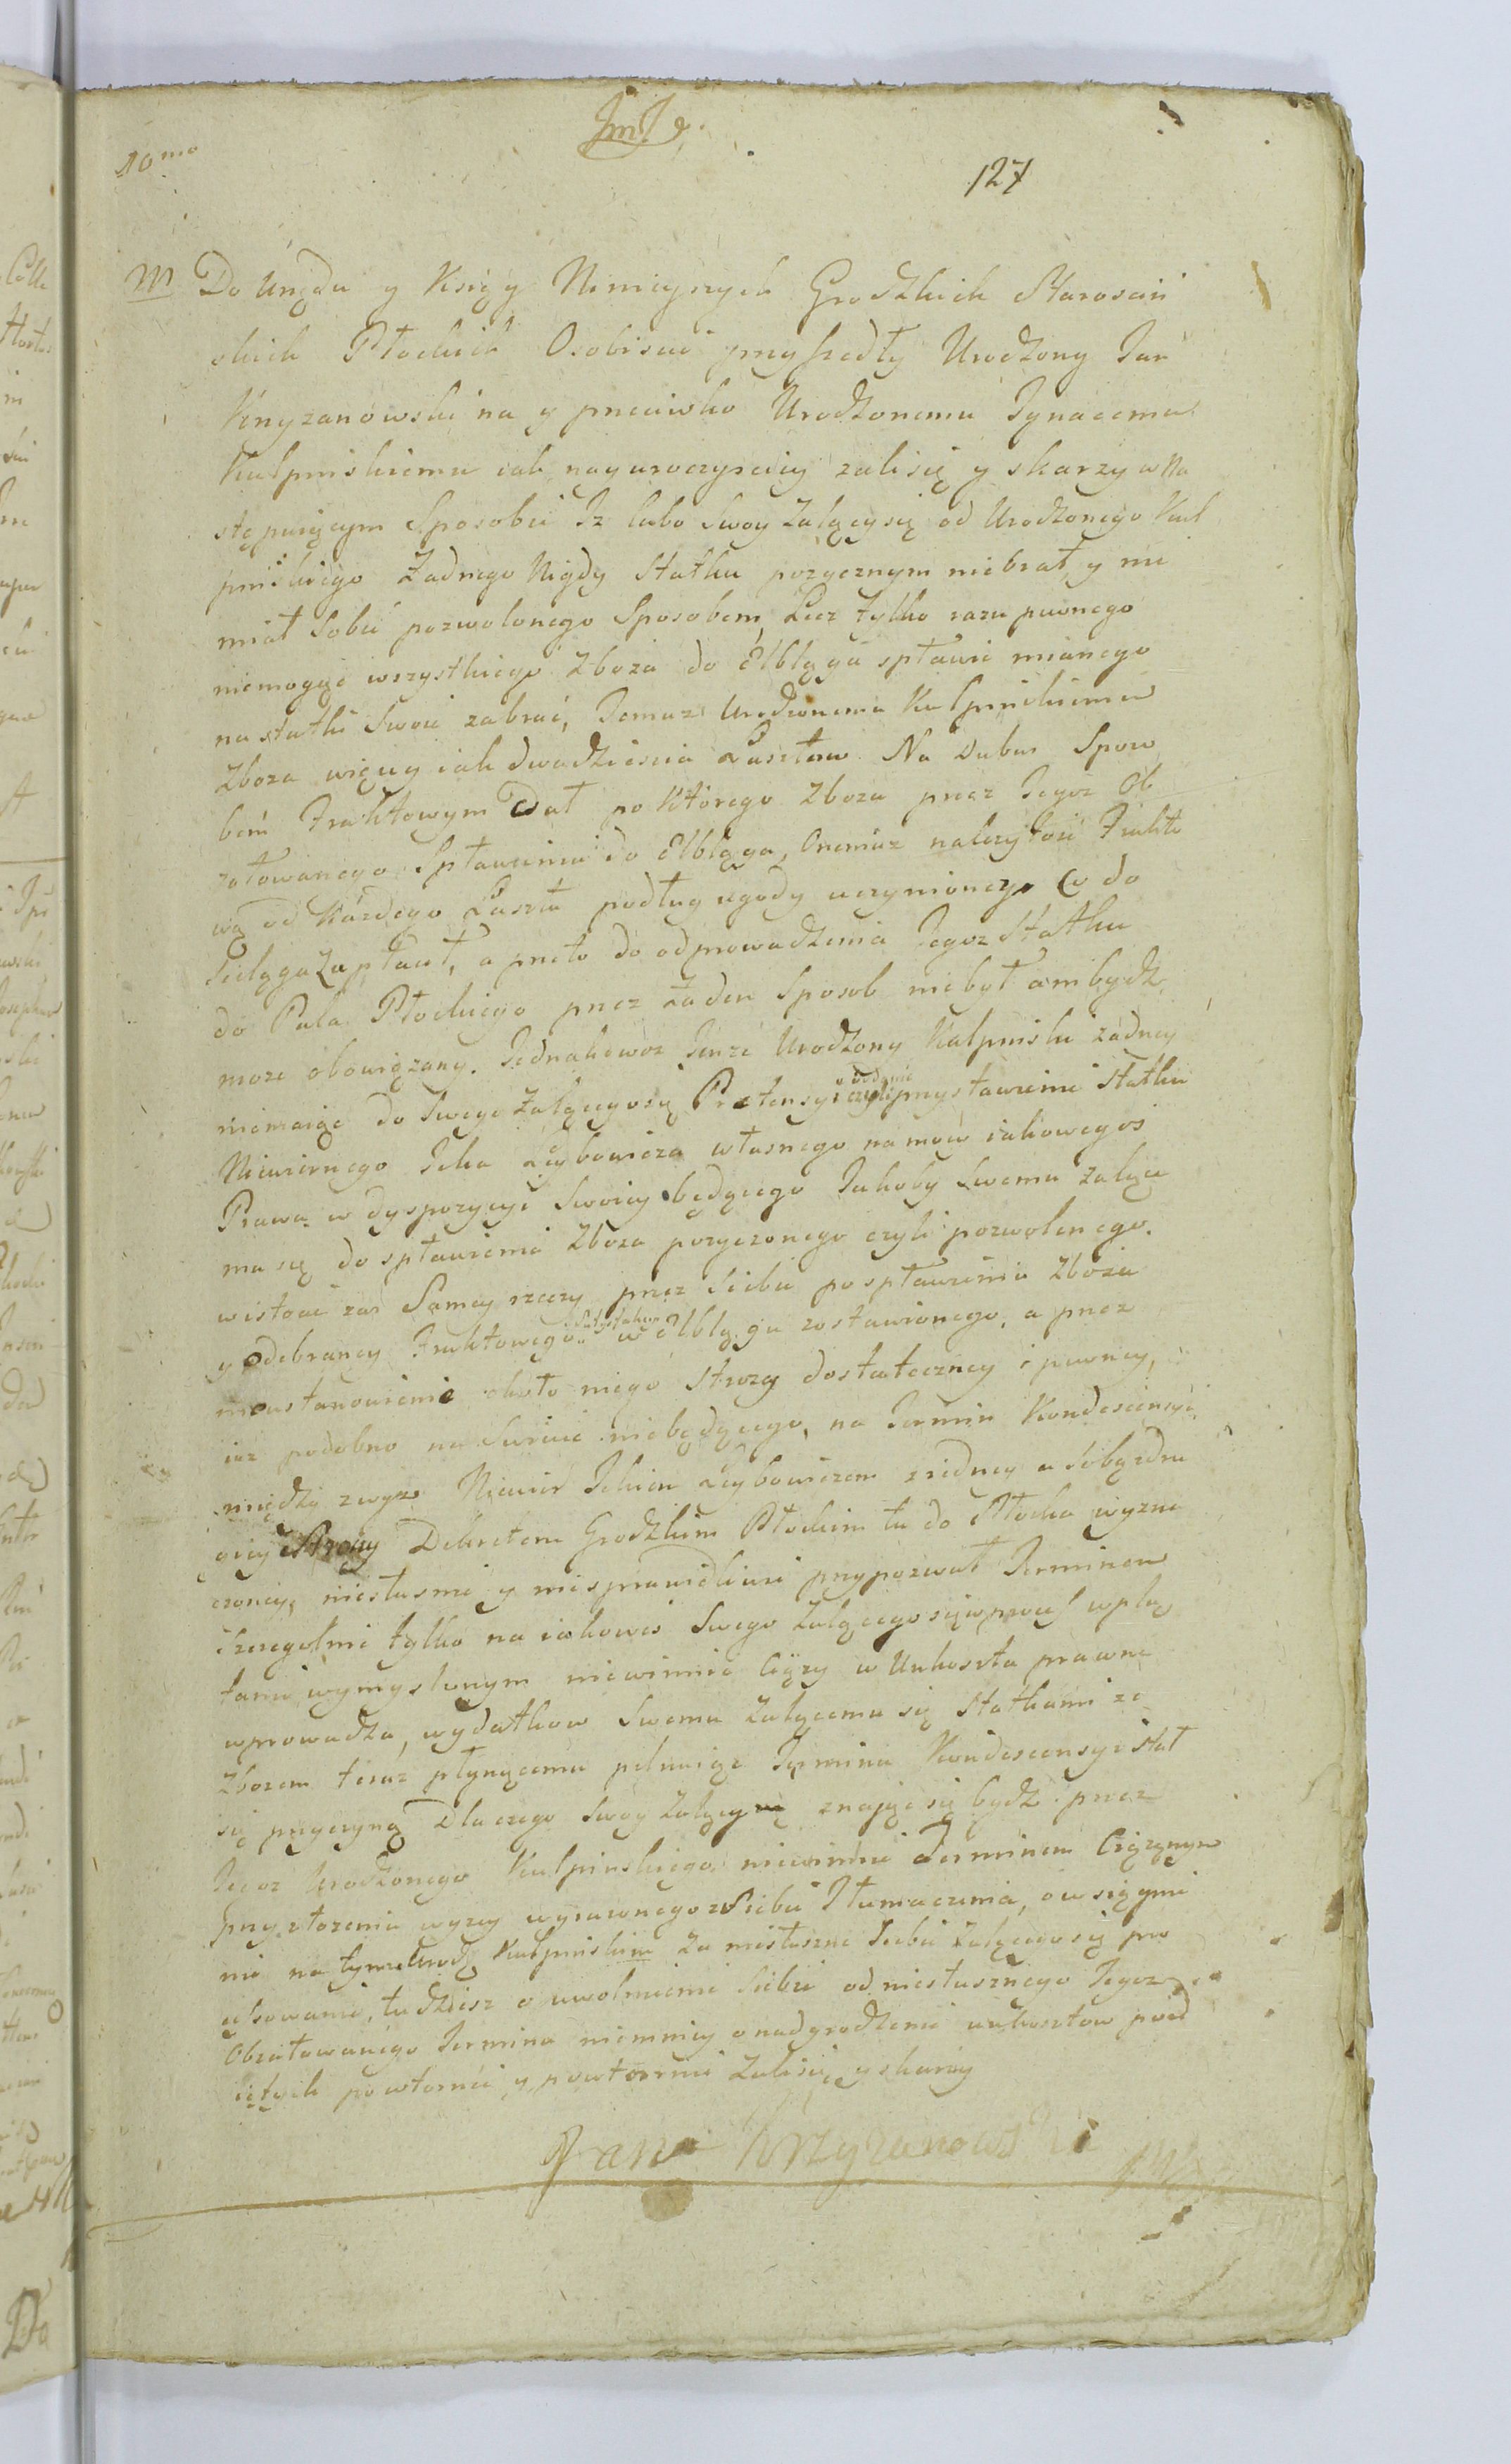 10mo
127
M Do Urzędu y Xsiąg Ninieyszych Grodzkich Starosciń
skich Płockich Osobiscie przyszedłszy Urodzony Jan
Krzyzanowski na y przeciwko Urodzonemu Ignacemu
Kulpinskiemu iak nayuroczysciey zali się y skarzy w Na
stępuiącym Sposobie Iz lubo Swoy Zalący się od Urodzonego Kul
pinskiego Zadnego Nigdy Statku pozycznym niebrał, y nie
miał Sobie pozwolonego Sposobem, Lecz tylko razu pewnego
niemogąc wszystkiego Zboza do Elbląga spławić mianego
na statki Swoie zabrać, Temuz Urodzonemu Kulpinskiemu
Zboza więcy iak dwadziescia Łasztow Na Dubas Sposo
bem Fraktowym Dał po Którego Zboza przez Tegoz Ob
załowanego Spławieniu do Elbląga, Onemuz nalezytość Frakto
wą od Kazdego Łasztu podług ugody uczynioney Co do
Szeląga Zapłacił, a przeto do odprowadzenia Tegoz Statku
do Pala Płockiego przez Zaden Sposob niebył ani bydz
moze obowiązany. Jednakowoz Tenze Urodzony Kulpinski zadney
niemaiąc do Swego Zalącego się Pretensyi czyli przystawienie Statku
Niewiernego Icka Leybowicza własnego na mocy iakowegos
Prawa w dyspozycyi Swoiey będącego Jakoby Swemu Zalące
mu się do spławienia Zboza pozyczonego czyli pozwolonego.
w istocie zas Samey rzeczy przez Siebie po spławieniu Zboza
y odebraney Fraktowego w Elblągu zostawionego, a przez
nieustanowienie około niego Strozy dostateczney i pewney,
iuz podobno na Swiecie niebędącego, na Termin Kondescensyi
między zwyz Niewier Ickiem Leybowiczem z iedney a Sobą z dru
giey Strony Dekretem Grodzkim Płockim tu do Płocka wyzna
czoney, niesłusznie y niesprawiedliwie przypozwał Terminem
Szczegolnie tylko na iakowes Swego Zalącego się w proces wplą
tanie wymyslonym niewinnie Ciązy w Unkoszta prawne
wprowadza, wydatkow Swemu Zalącemu się Statkami ze
Zbozem teraz płynącemu pilnuiąc Termina Kondescensyi stał
się przyczyną Dla czego Swoy Zalący się znaiąc się bydz przez
Tegoz Urodzonego Kulpinskiego niewinnie Terminem Ciązonym
przy złozeniu wyzey wyrazonego z Siebie Tłumaczenia, o wsięgnie
nie na tymze Urodz. Kulpinskim za niesłuszne Siebie Zalącego się pro
cessowanie, tudziesz o uwolnienie Siebie od niesłusznego Tegoz
Obzałowanego Termina niemniey o nadgrodzenie unkosztow pod
iętych powtornie y powtornie Zali się y skarzy
Jan Krzyzanowski